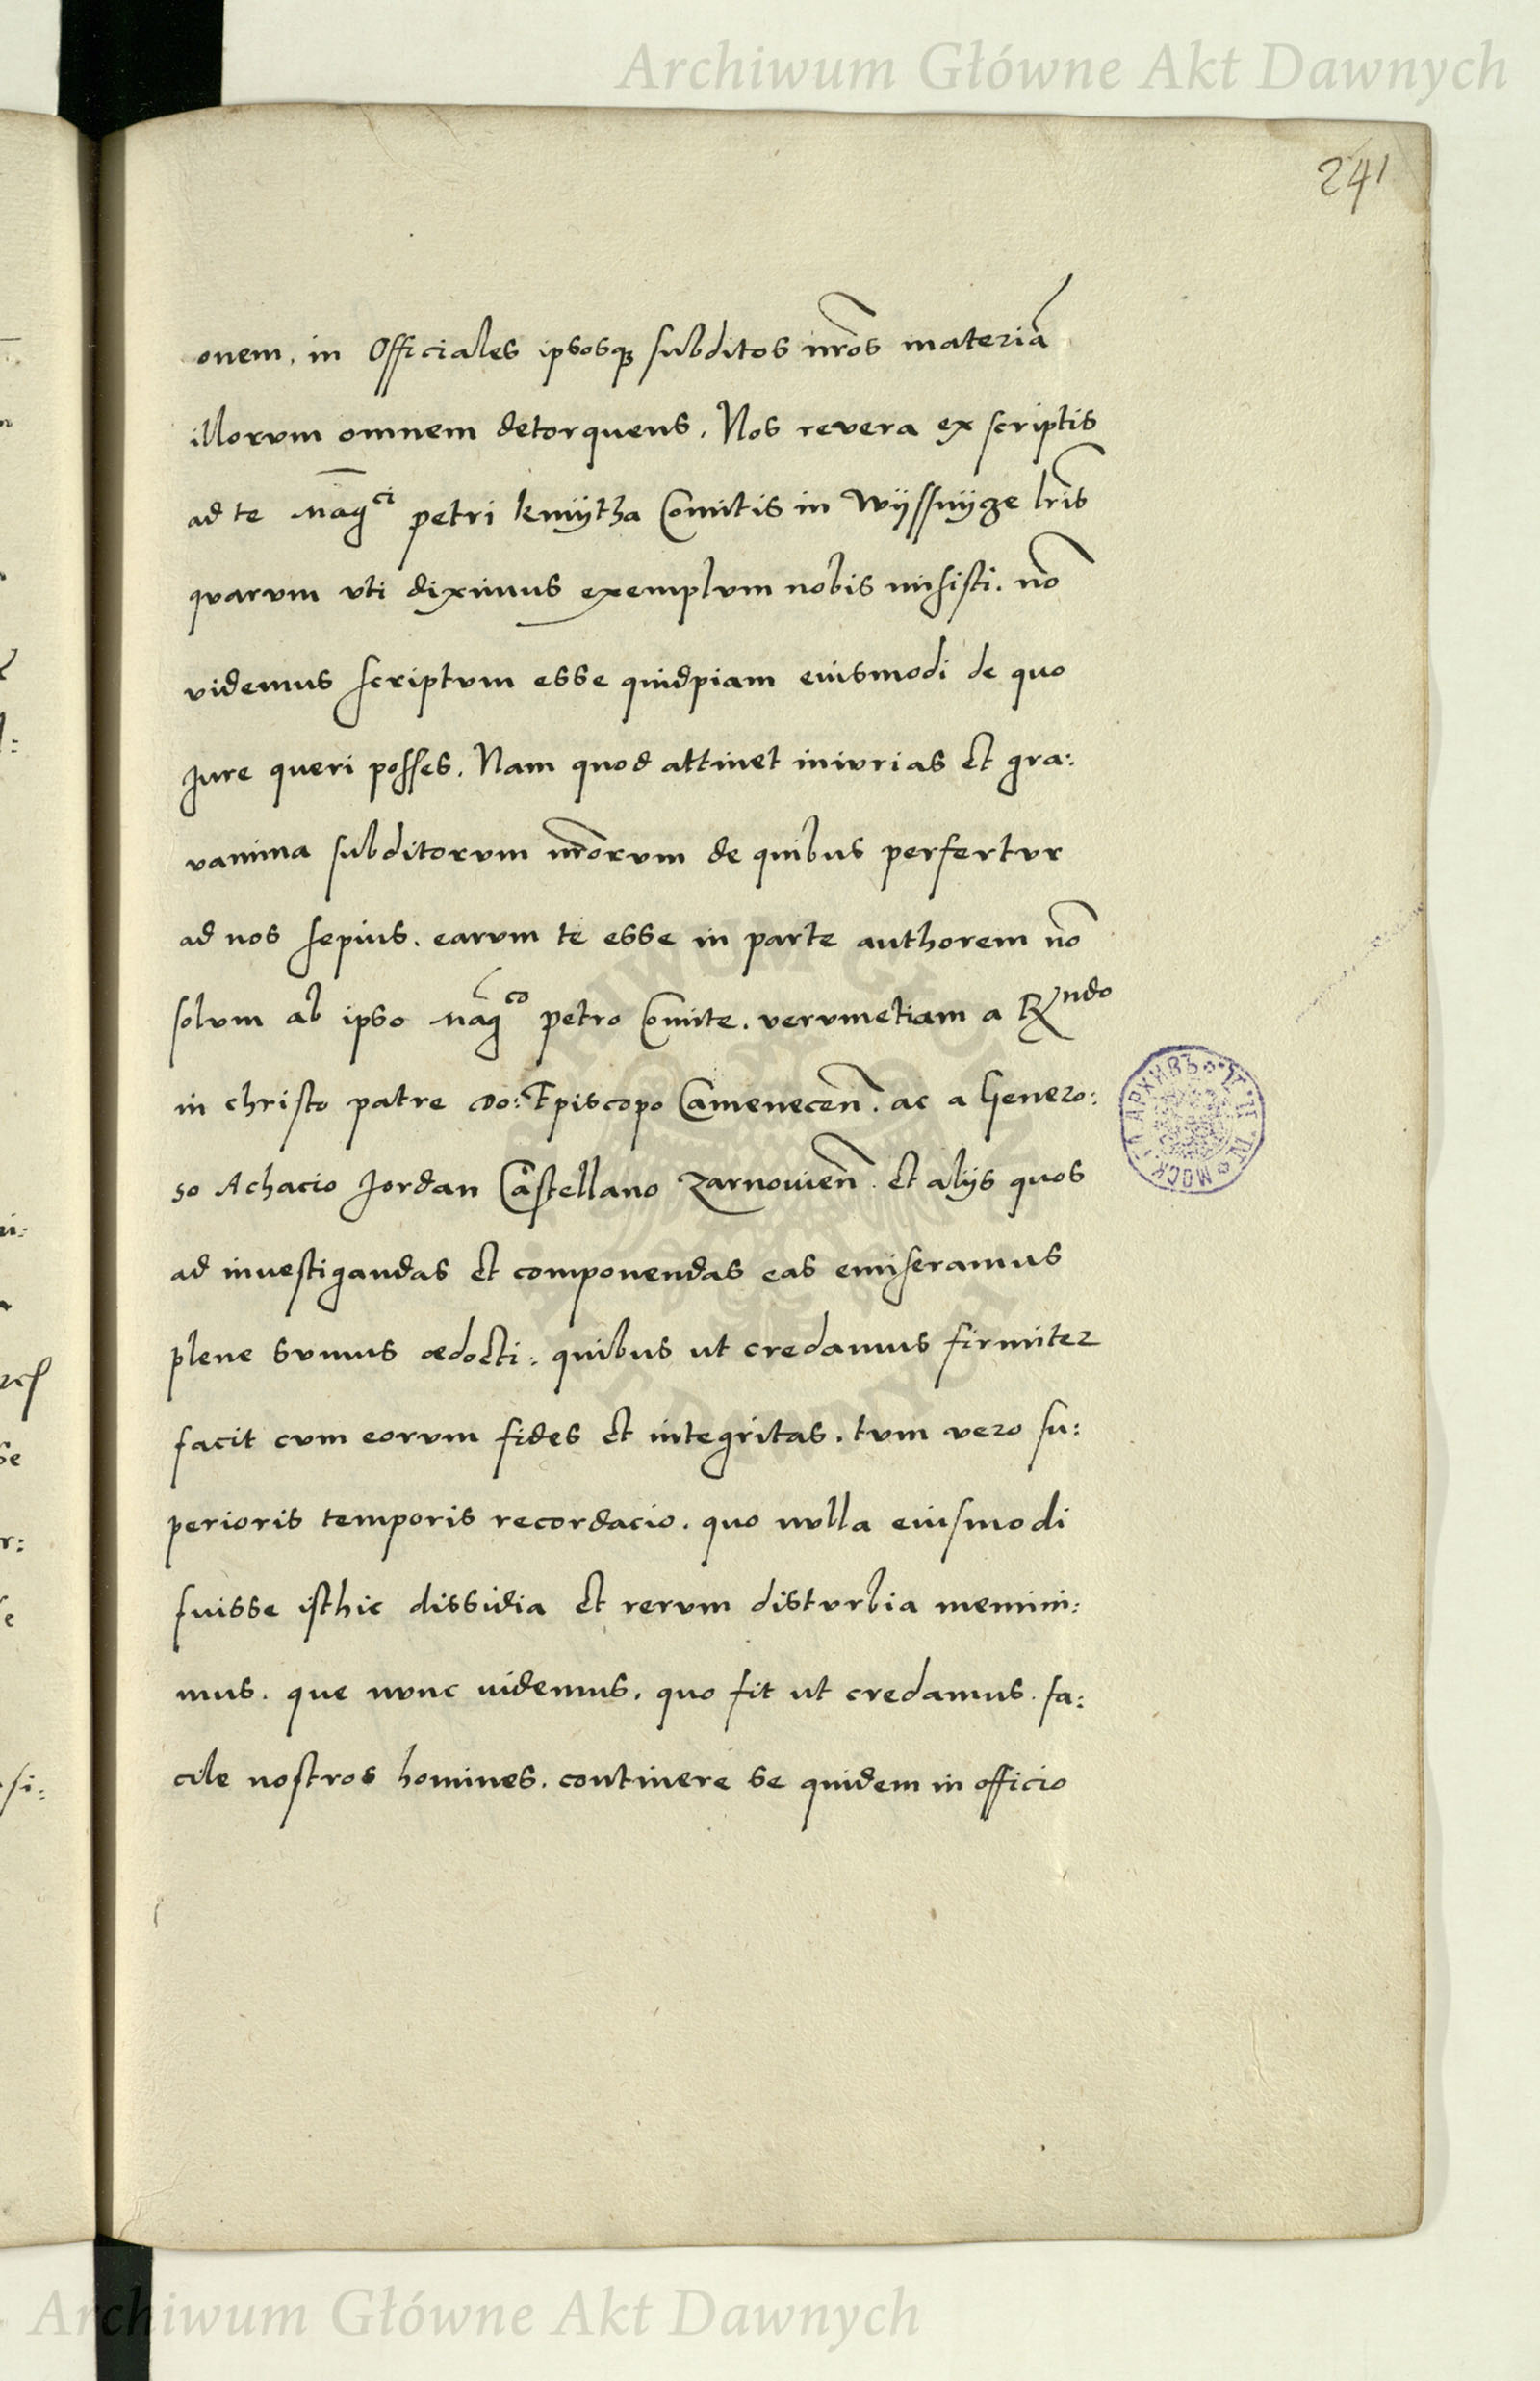 Archiwum Główne Akt Dawnych
241
onem. in Officiales ipsosq₃ subditos nr̃os materiã
illorum omnem detorquens. Nos revera ex scriptis
ad te Mag^ci petri kmÿtha Comitis in Wÿssnÿcze lr̃is
quarum uti diximus exemplum nobis misisti. nõ
videmus scriptum esse quidpiam eiusmodi de quo
Jure queri posses. Nam quod attinet iniurias et gra:
vamina subditorum nr̃orum de quibus perfertur
ad nos sepius. earum te esse in parte authorem nõ
solum ab ipso Mag^co petro Comite. verumetiam a R^ndo
in christo patre Do: Episcopo Camenecen̄. ac a Genero:
so Achacio Jordan Castellano Zarnovien̄. et alijs quos
ad investigandas et componendas eas emiseramus
plene sumus ædocti: quibus ut credamus firmiter
facit cum eorum fides et integritas. tum vero su:
perioris temporis recordacio. quo nulla eiusmodi
fuisse isthic dissidia et rerum disturbia memini:
mus. que nunc videmus. quo fit ut credamus. fa:
cile nostros homines. continere se quidem in officio
Archiwum Główne Akt Dawnych